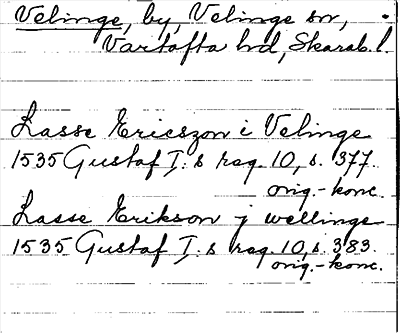 Velinge, by, Velinge sn,
Vartofta hd, Skarab. l.
Lasse Ericszon i Velinge
1535 Gustaf I:s reg. 10, s. 377.
orig.-konc.
Lasse Erikson j wellinge
1535 Gustaf I:s reg. 10, s. 383.
orig.-konc.